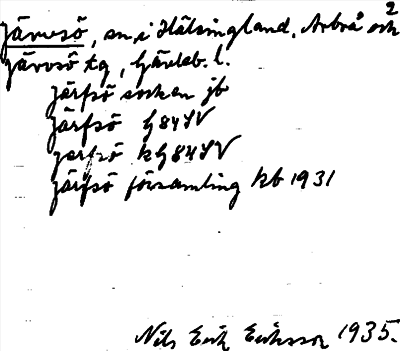 2
Järvsö, sn, i Hälsingland, Arbrå och
Järvsö tg, Gävleb. l.
Järfsö socken jb
Järfsö G84SV
Jerfsö kG84SV
Järfsö församling kb 1931
Nils Erik Eriksson 1935.